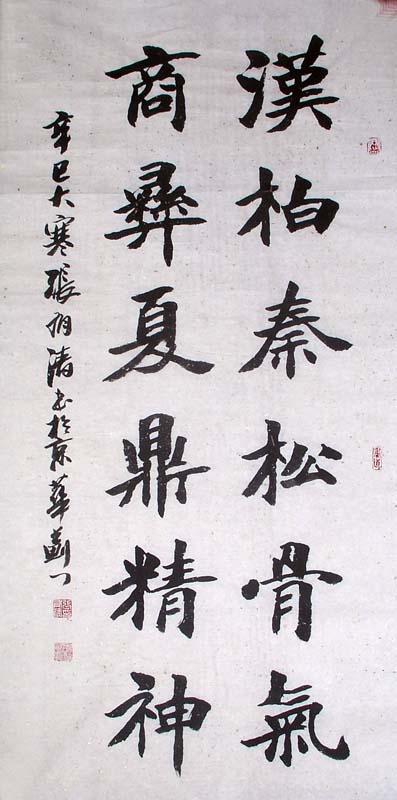 漢柏秦松骨氣
商彝夏鼎精神
辛巳大寒張明清书於京華劍门